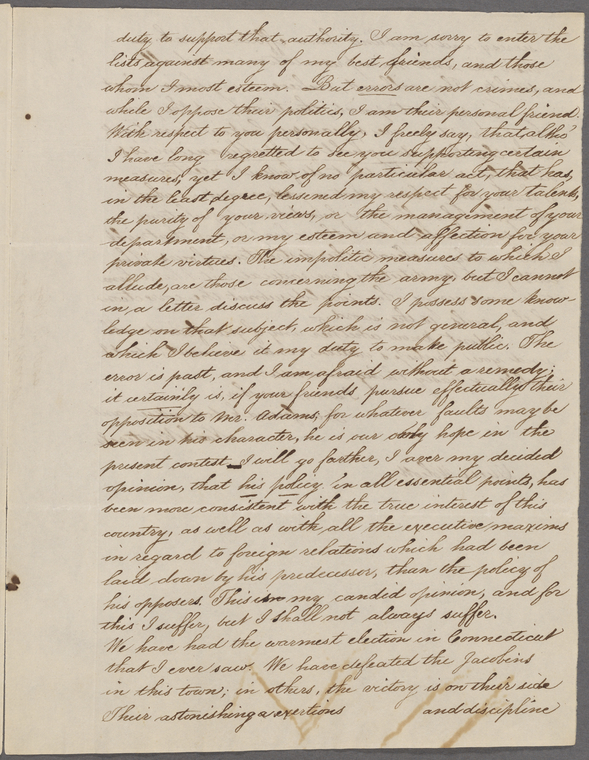 duty to support that authority. I am sorry to enter the
lists against many of my best friends, and those
whom I most esteem. But errors are not crimes, and
while I oppose their politics, I am their personal friend.
With respect to you personally, I freely say, that, altho'
I have long regretted to see you supporting certain
measures, yet I know of no particular act, that has,
in the least degree, lessened my respect for your talents,
the purity of your views, or the management of your
department, or my esteem and affection for your
private virtues. The impolitic measures to which I
allude, are those concerning the army, but I cannot
in a letter discuss the points. I possess some know-
ledge on that subject, which is not general, and
which I believe it my duty to make public. The
error is past, and I am afraid without a remedy;
it certainly is, if your friends pursue effectually their
opposition to Mr. Adams; for whatever faults may be
seen in his character, he is our only hope in the
present contest. I will go farther, I aver my decided
opinion, that his policy in all essential points, has
been more consistent with the true interest of this
country, as well as with all the executive maxims
in regard to foreign relations which had been
laid down by his predecessor, than the policy of
his opposers. This is my candid opinion, and for
this I suffer, but I shall not always suffer.
We have had the warmest election in Connecticut
that I ever saw. We have defeated the Jacobins
in this town; in others, the victory is on their side
Their astonishing exertions and discipline